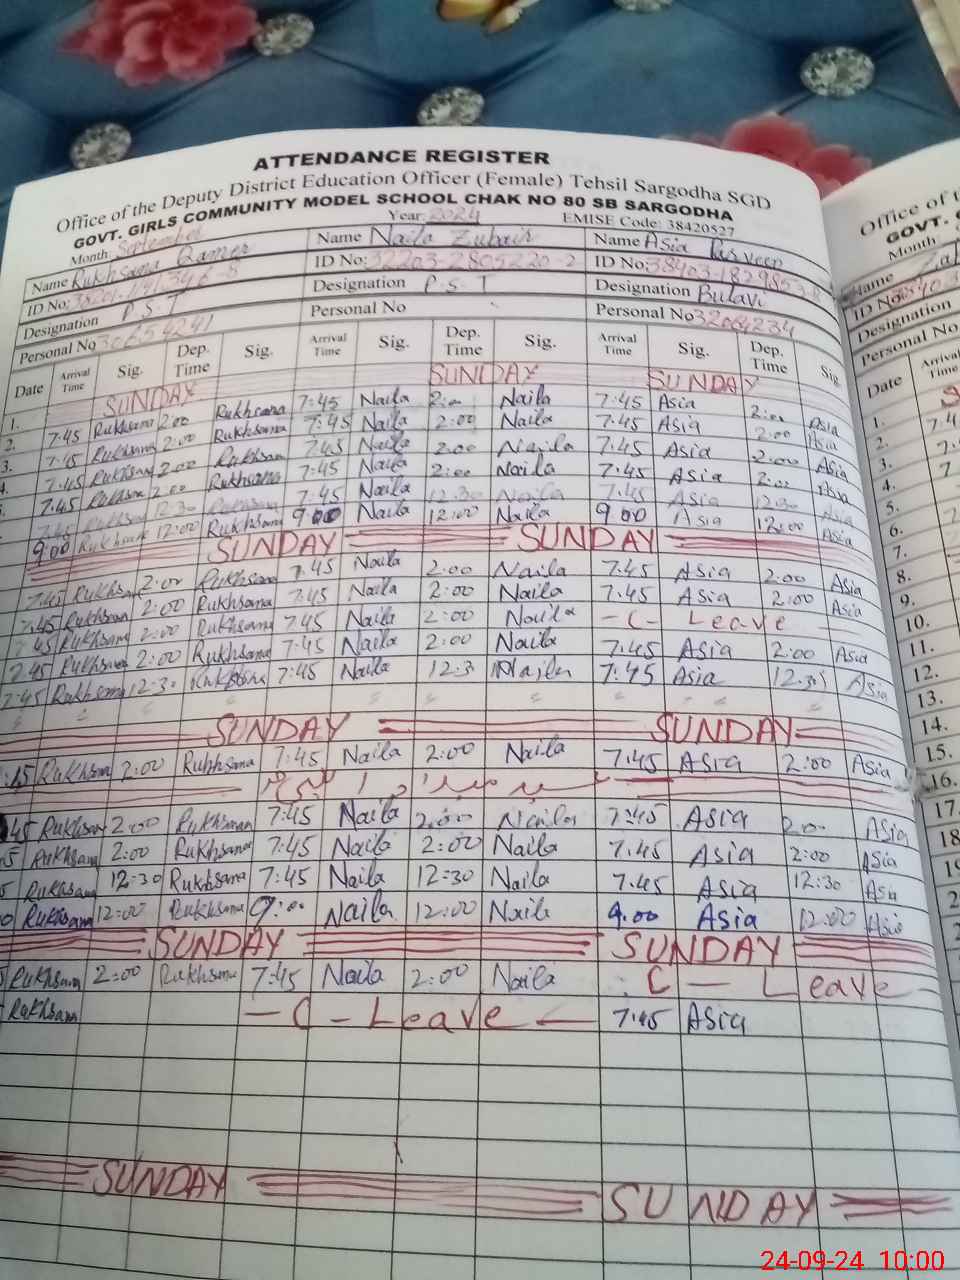 ATTENDANCE REGISTER
Office of the Deputy District Education Officer (Female) Tehsil Sargodha SGD
GOVT. GIRLS COMMUNITY MODEL SCHOOL CHAK NO 80 SB SARGODHA
Month: September Year: 2024 EMISE Code: 38420527
Name Rukhsana Qamer Name Naila Zubair Name Asia Parveen
ID No: ID No: 32203-2805220-2 ID No:
Designation P.S.T Designation P.S.T Designation Bulavi
Personal No 30654241 Personal No Personal No 32064234
Date Arrival Time Sig. Dep. Time Sig. Arrival Time Sig. Dep. Time Sig. Arrival Time Sig. Dep. Time Sig.
1. SUNDAY SUNDAY SUNDAY
2. 7:45 Rukhsana 2:00 Rukhsana 7:45 Naila 2:00 Naila 7:45 Asia 2:00 Asia
3. 7:45 Rukhsana 2:00 Rukhsana 7:45 Naila 2:00 Naila 7:45 Asia 2:00 Asia
7:45 Rukhsana 2:00 Rukhsan 7:45 Naila 2:00 Naila 7:45 Asia 2:00 Asia
7:45 Rukhsan 2:00 Rukhsana 7:45 Naila 2:00 Naila 7:45 Asia 2:00 Asia
7:45 Rukhsan 12:30 Rukhsana 7:45 Naila 12:30 Naila 7:45 Asia 12:30 Asia
9:00 Rukhsana 12:00 Rukhsana 9:00 Naila 12:00 Naila 9:00 Asia 12:00 Asia
SUNDAY SUNDAY
7:45 Rukhsa 2:00 Rukhsana 7:45 Naila 2:00 Naila 7:45 Asia 2:00 Asia
7:45 Rukhsana 2:00 Rukhsana 7:45 Naila 2:00 Naila 7:45 Asia 2:00 Asia
7:45 Rukhsana 2:00 Rukhsana 7:45 Naila 2:00 Naila - C - Leave
7:45 Rukhsana 2:00 Rukhsana 7:45 Naila 2:00 Naila 7:45 Asia 2:00 Asia
7:45 Rukhsana 12:30 Rukhsana 7:45 Naila 12:3 Naila 7:45 Asia 12:30 Asia
SUNDAY SUNDAY
:45 Rukhsana 2:00 Rukhsana 7:45 Naila 2:00 Naila 7:45 Asia 2:00 Asia
45 Rukhsan 2:00 Rukhsana 7:45 Naila 2:00 Naila 7:45 Asia 2:00 Asia
5 Rukhsana 2:00 Rukhsana 7:45 Naila 2:00 Naila 7:45 Asia 2:00 Asia
Rukhsana 12:30 Rukhsana 7:45 Naila 12:30 Naila 7:45 Asia 12:30 Asia
0 Rukhsana 12:00 Rukhsana 9:00 Naila 12:00 Naila 9:00 Asia 12:00 Asia
SUNDAY SUNDAY
Rukhsana 2:00 Rukhsana 7:45 Naila 2:00 Naila C - Leave
Rukhsana - C - Leave - 7:45 Asia
SUNDAY SUNDAY
Office of t
GOVT.
Month:
Name
ID No
Designation
Personal No
Date Arrival Time
1.
2.
3.
4.
5.
6.
7.
8.
9.
10.
11.
12.
13.
14.
15.
16.
17.
18
24-09-24 10:00